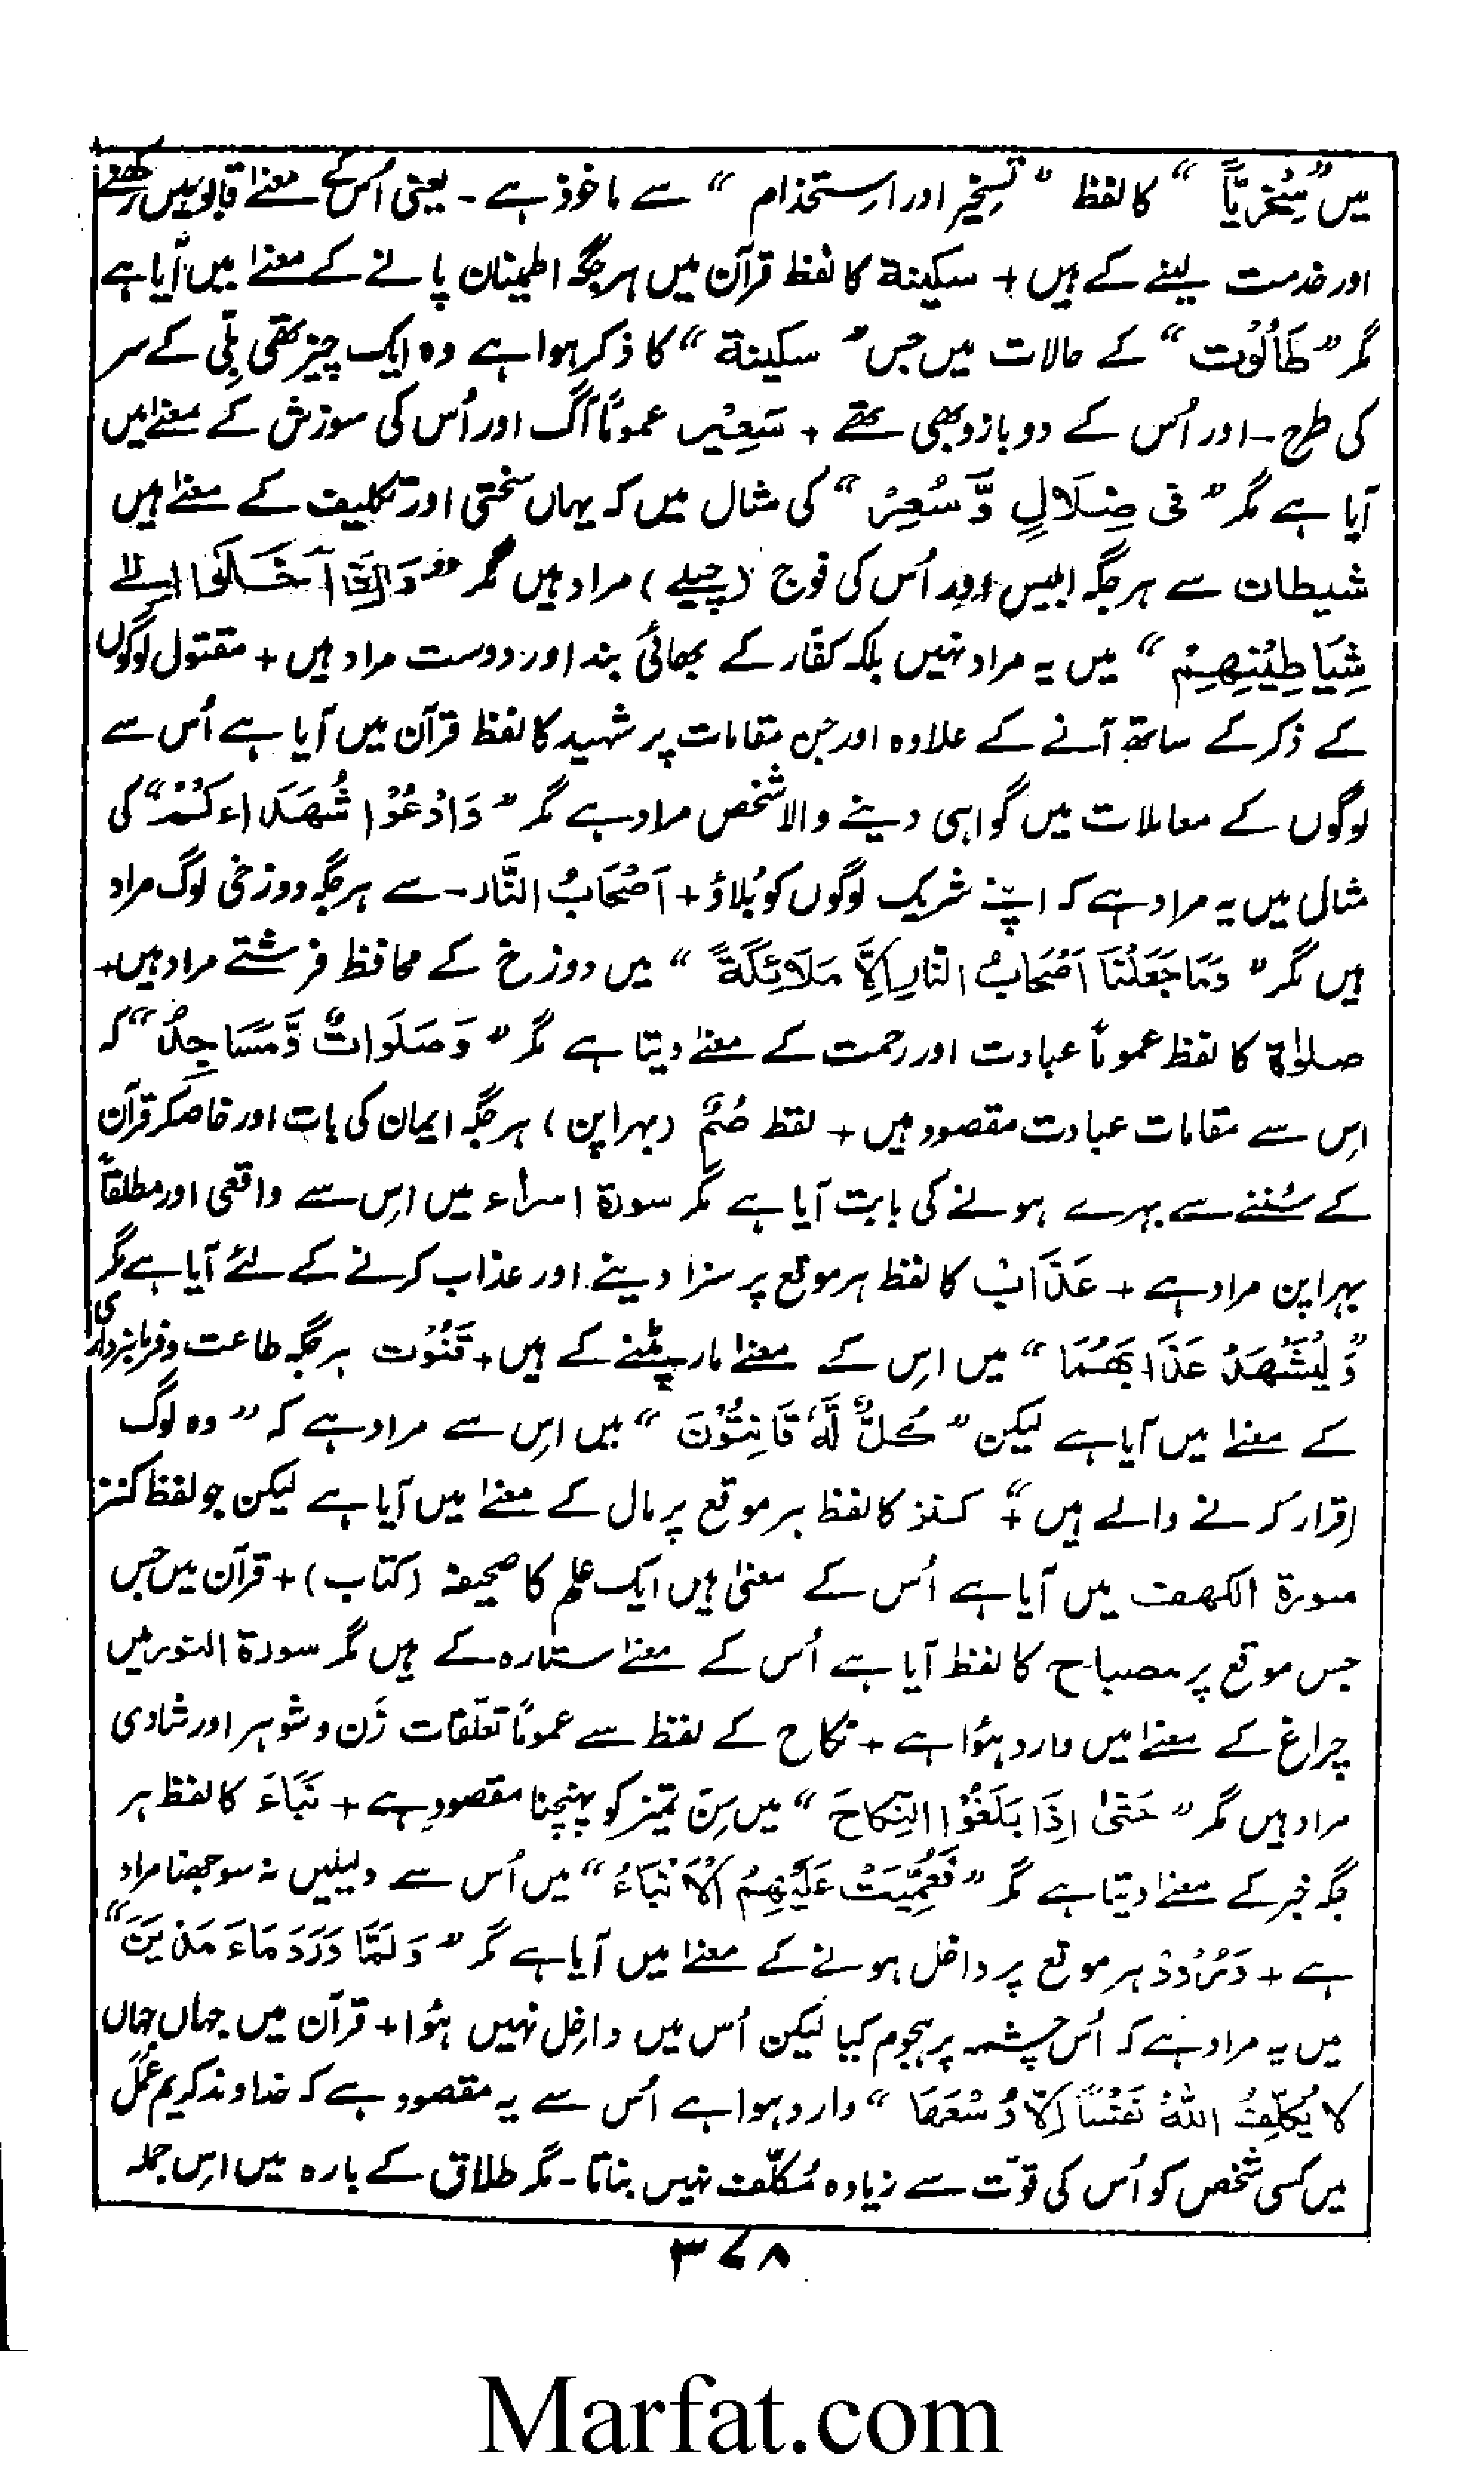 میں ”سُخْرِیًّا“ کا لفظ ”تسخیر اور استخذام“ سے ماخوذ ہے۔ یعنی اُس کے معنےٰ قابو میں رکھنے
اور خدمت لینے کے ہیں + سکینۃ کا لفظ قرآن میں ہر جگہ اطمینان پانے کے معنےٰ میں آیا ہے
مگر ”طَالُوْت“ کے حالات میں جس ”سکینۃ“ کا ذکر ہوا ہے وہ ایک چیز تھی بِلّی کے سر
کی طرح۔ اور اُس کے دو بازو بھی تھے + سَعِیْر عموماً آگ اور اُس کی سوزش کے معنےٰ میں
آیا ہے مگر ”فی ضِلَالٍ وَّسُعِرْ“ کی مثال میں کہ یہاں سختی اور تکلیف کے معنےٰ ہیں
شیطان سے ہر جگہ ابلیس اور اُس کی فوج (چیلے) مراد ہیں مگر ”وَاِذَا خَلَوْا اِلیٰ
شِیَاطِیْنِھِمْ“ میں یہ مراد نہیں بلکہ کفّار کے بھائی بند اور دوست مراد ہیں + مقتول لوگوں
کے ذکر کے ساتھ آنے کے علاوہ اور جن مقامات پر شہید کا لفظ قرآن میں آیا ہے اُس سے
لوگوں کے معاملات میں گواہی دینے والا شخص مراد ہے مگر ”وَادْعُوْا شُھَدَاءَکُمْ“ کی
مثال میں یہ مراد ہے کہ اپنے شریک لوگوں کو بُلاؤ + اَصْحَابُ النَّار۔ سے ہر جگہ دوزخی لوگ مراد
ہیں مگر ”وَمَا جَعَلْنَا اَصْحَابُ النَّارِ اِلَّا مَلَائِکَةً“ میں دوزخ کے محافظ فرشتے مراد ہیں +
صلوٰۃ کا لفظ عموماً عبادت اور رحمت کے معنےٰ دیتا ہے مگر ”وَصَلَوَاتٌ وَّمَسَاجِدُ“ کہ
اِس سے مقامات عبادت مقصود ہیں + لفظ صُمٌّ (بہراپن) ہر جگہ ایمان کی بات اور خاصکر قرآن
کے سُننے سے بہرے ہونے کی بابت آیا ہے مگر سورۃ اسراء میں اِس سے واقعی اور مطلقاً
بہراپن مراد ہے + عَذَابٌ کا لفظ ہر موقع پر سزا دینے اور عذاب کرنے کے لئے آیا ہے مگر
”وَلْیَشْھَدْ عَذَابَھُمَا“ میں اِس کے معنےٰ مار پیٹنے کے ہیں + قَنُوْت ہر جگہ طاعت و فرمانبرداری
کے معنےٰ میں آیا ہے لیکن ”کُلٌّ لَّهٗ قَانِتُوْنَ“ میں اِس سے مراد ہے کہ ”وہ لوگ
اقرار کرنے والے ہیں“ + کنز کا لفظ ہر موقع پر مال کے معنےٰ میں آیا ہے لیکن جو لفظ کنز
سورۃ الکھف میں آیا ہے اُس کے معنیٰ ہیں ایک علم کا صحیفہ (کتاب) + قرآن میں جس
جس موقع پر مصباح کا لفظ آیا ہے اُس کے معنےٰ ستارہ کے ہیں مگر سورۃ النور میں
چراغ کے معنےٰ میں وارد ہؤا ہے + نکاح کے لفظ سے عموماً تعلّقات زَن و شوہر اور شادی
مراد ہیں مگر ”حَتّٰی اِذَا بَلَغُوْا النِّکَاحَ“ میں سِنّ تمیز کو پہنچنا مقصود ہے + نَبَاءَ کا لفظ ہر
جگہ خبر کے معنےٰ دیتا ہے مگر ”فَعُمِّیَتْ عَلَیْھِمُ الْاَنْبَاءُ“ میں اُس سے دلیلیں نہ سوجھنا مراد
ہے + وَرُوْدْ ہر موقع پر داخل ہونے کے معنےٰ میں آیا ہے مگر ”وَلَمَّا وَرَدَ مَاءَ مَدْیَنَ“
میں یہ مراد ہے کہ اُس چشمہ پر ہجوم کیا لیکن اُس میں داخِل نہیں ہؤا + قرآن میں جہاں جہاں
لَا یُکَلِّفُ اللّٰهُ نَفْسًا اِلَّا وُسْعَھَا“ وارد ہوا ہے اُس سے یہ مقصود ہے کہ خداوند کریم عمل
میں کسی شخص کو اُس کی قوّت سے زیادہ مُکلّف نہیں بناتا۔ مگر طلاق کے بارہ میں اِس جملہ
۳۷۸
Marfat.com